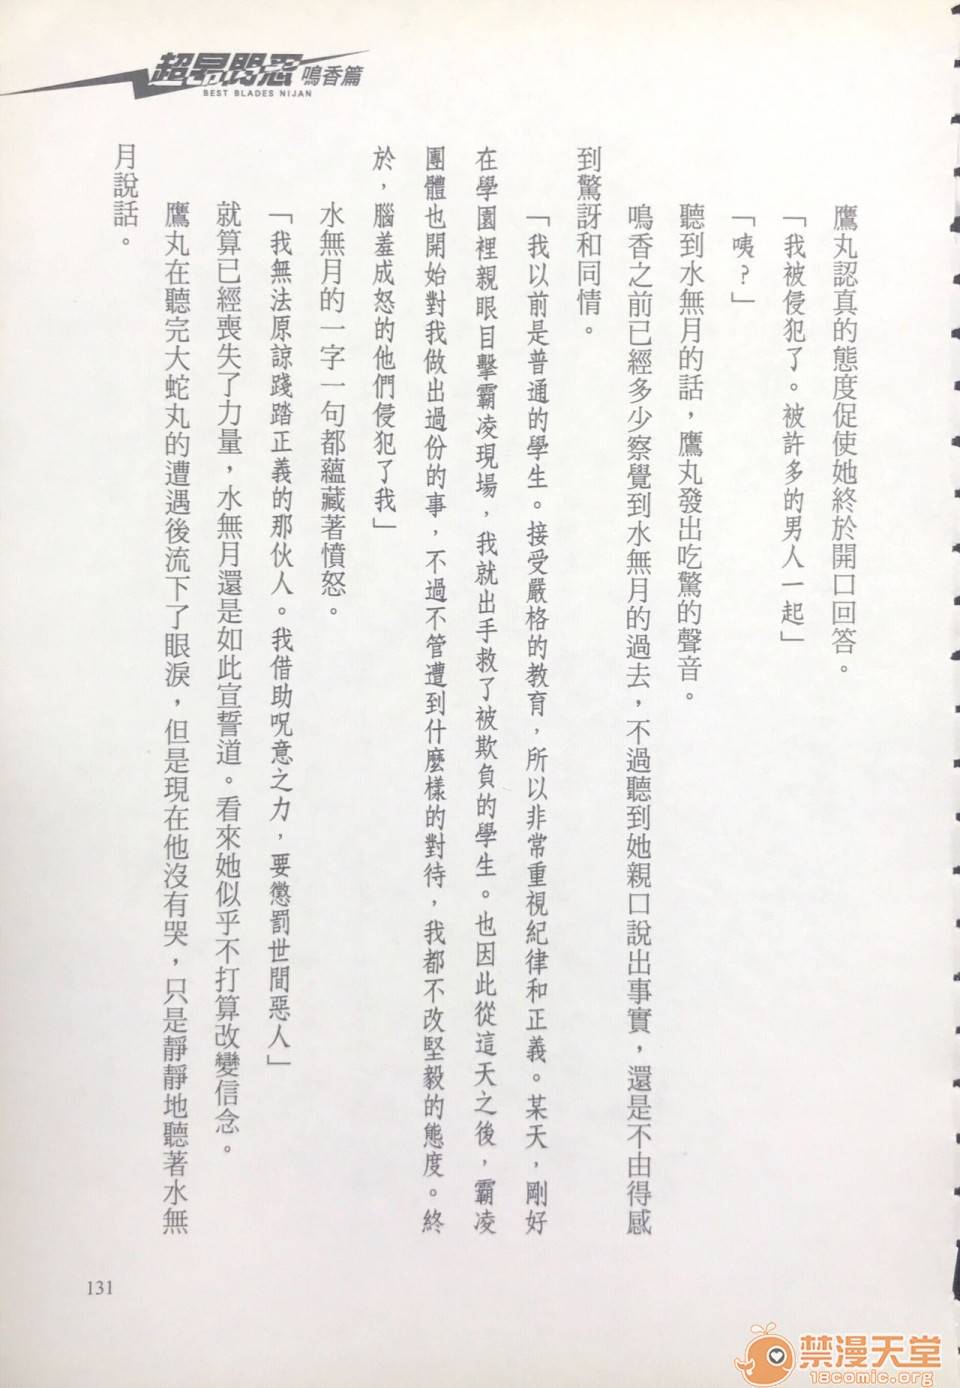 超昂閃忍 鳴香篇
BEST BLADES NIJAN
鷹丸認真的態度促使她終於開口回答。
「我被侵犯了。被許多的男人一起」
「咦?」
聽到水無月的話，鷹丸發出吃驚的聲音。
鳴香之前已經多少察覺到水無月的過去，不過聽到她親口說出事實，還是不由得感
到驚訝和同情。
「我以前是普通的學生。接受嚴格的教育，所以非常重視紀律和正義。某天，剛好
在學園裡親眼目擊霸凌現場，我就出手救了被欺負的學生。也因此從這天之後，霸凌
團體也開始對我做出過份的事，不過不管遭到什麼樣的對待，我都不改堅毅的態度。終
於，腦羞成怒的他們侵犯了我」
水無月的一字一句都蘊藏著憤怒。
「我無法原諒踐踏正義的那伙人。我借助呪意之力，要懲罰世間惡人」
就算已經喪失了力量，水無月還是如此宣誓道。看來她似乎不打算改變信念。
鷹丸在聽完大蛇丸的遭遇後流下了眼淚，但是現在他沒有哭，只是靜靜地聽著水無
月說話。
131
禁漫天堂
18comic.org